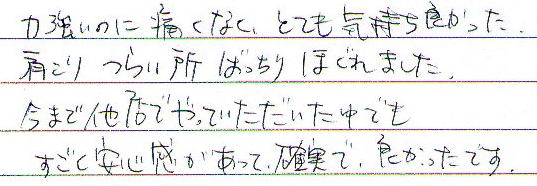 力強いのに痛くなく、とても気持ち良かった。
肩こりつらい所ばっちりほぐれました。
今まで他店でやっていただいた中でも
すごく安心感があって、確実で、良かったです。